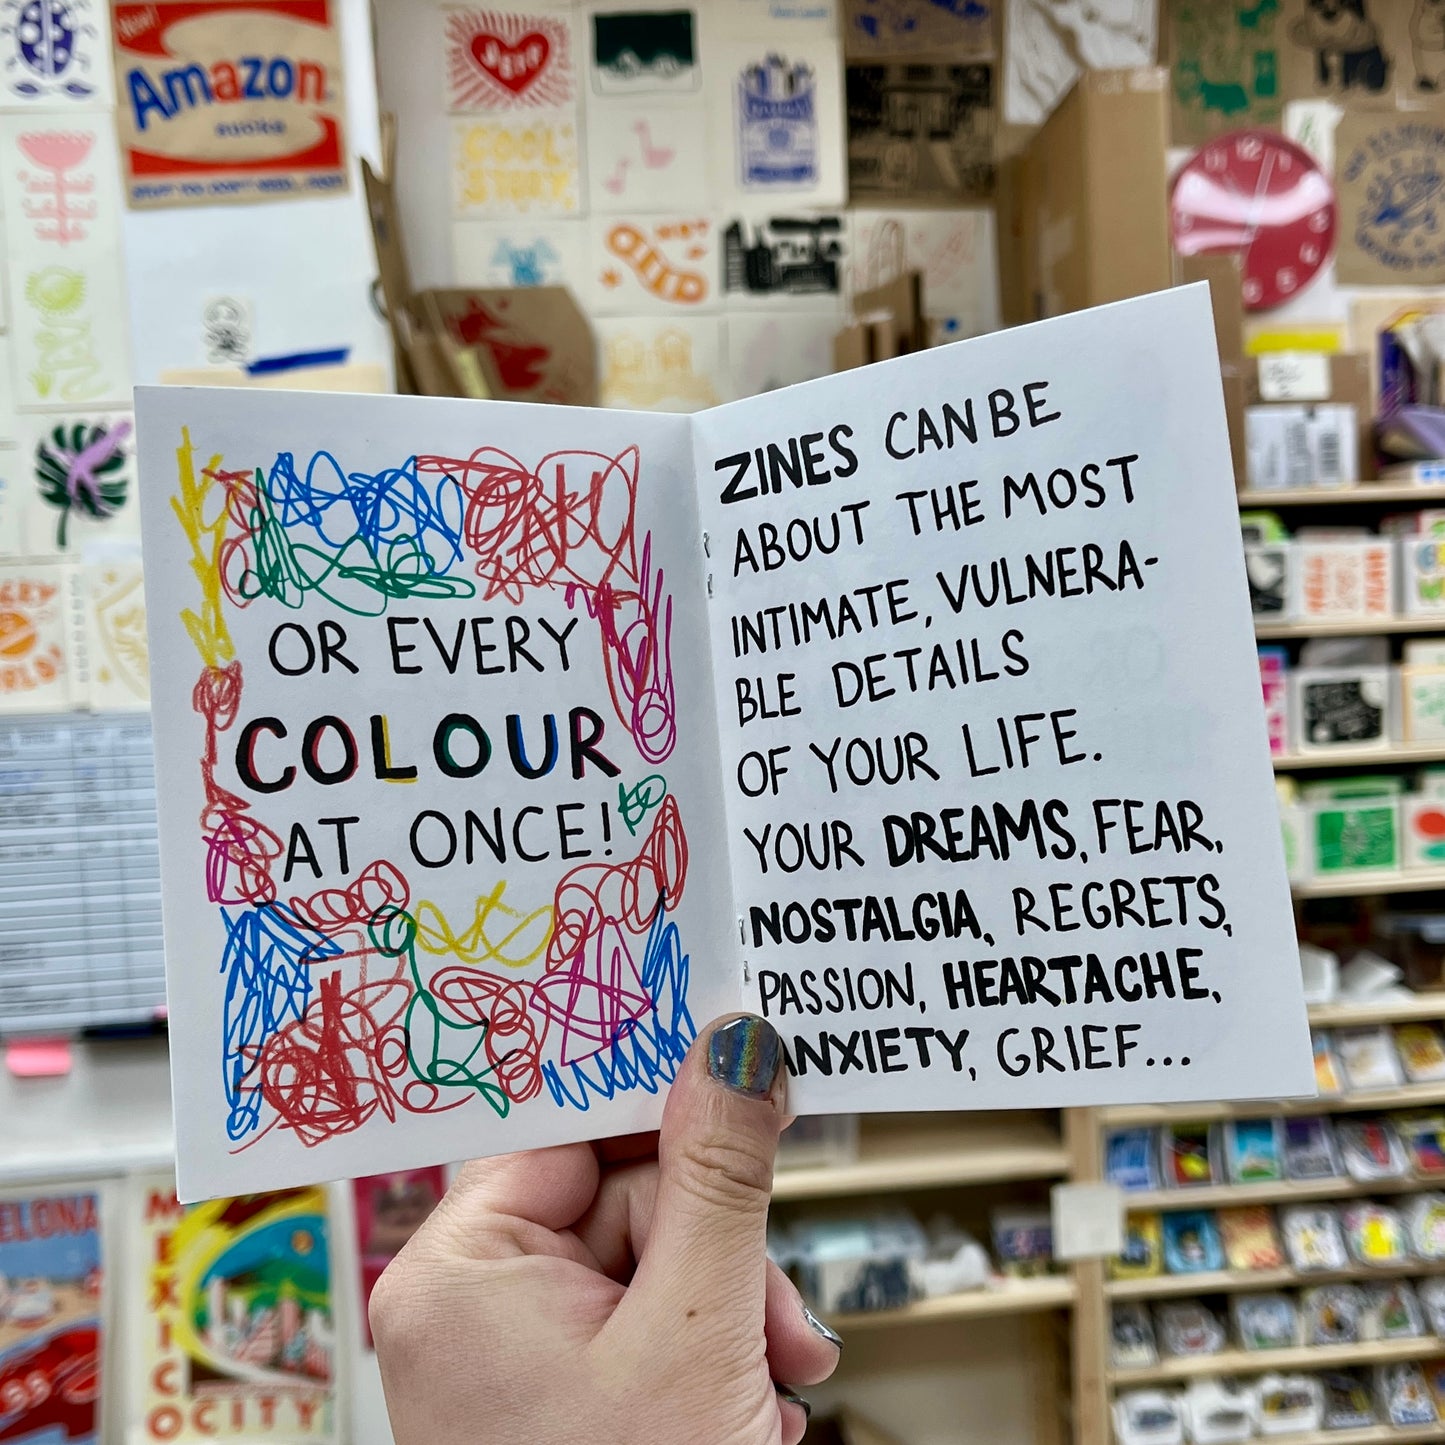 Amazon
sucks
COOL
STORY
OR EVERY
COLOUR
AT ONCE!
ZINES CAN BE
ABOUT THE MOST
INTIMATE, VULNERA-
BLE DETAILS
OF YOUR LIFE.
YOUR DREAMS, FEAR,
NOSTALGIA, REGRETS,
PASSION, HEARTACHE,
ANXIETY, GRIEF...
MEXICO
CITY